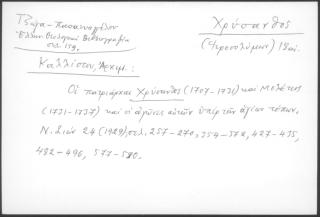 Τζώγα - Παπαευαγγέλου
Ἑλλην. Θεολογική Βιβλιογραφία
σελ. 159.
Χρύσανθος
(Ἱεροσολύμων) 18 αἰ.
Καλλίστου, Ἀρχιμ.:
Οἱ πατριάρχαι Χρύσανθος (1707-1731) καὶ Μελέτιος
(1731-1737) καὶ οἱ ἀγῶνες αὐτῶν ὑπὲρ τῶν ἁγίων τόπων.
Ν. Σιών 24 (1929), σελ. 257-270, 354-372, 427-435,
482-496, 577-580.